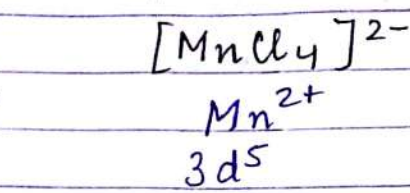 [MnCl₄]²⁻
Mn²⁺
3d⁵